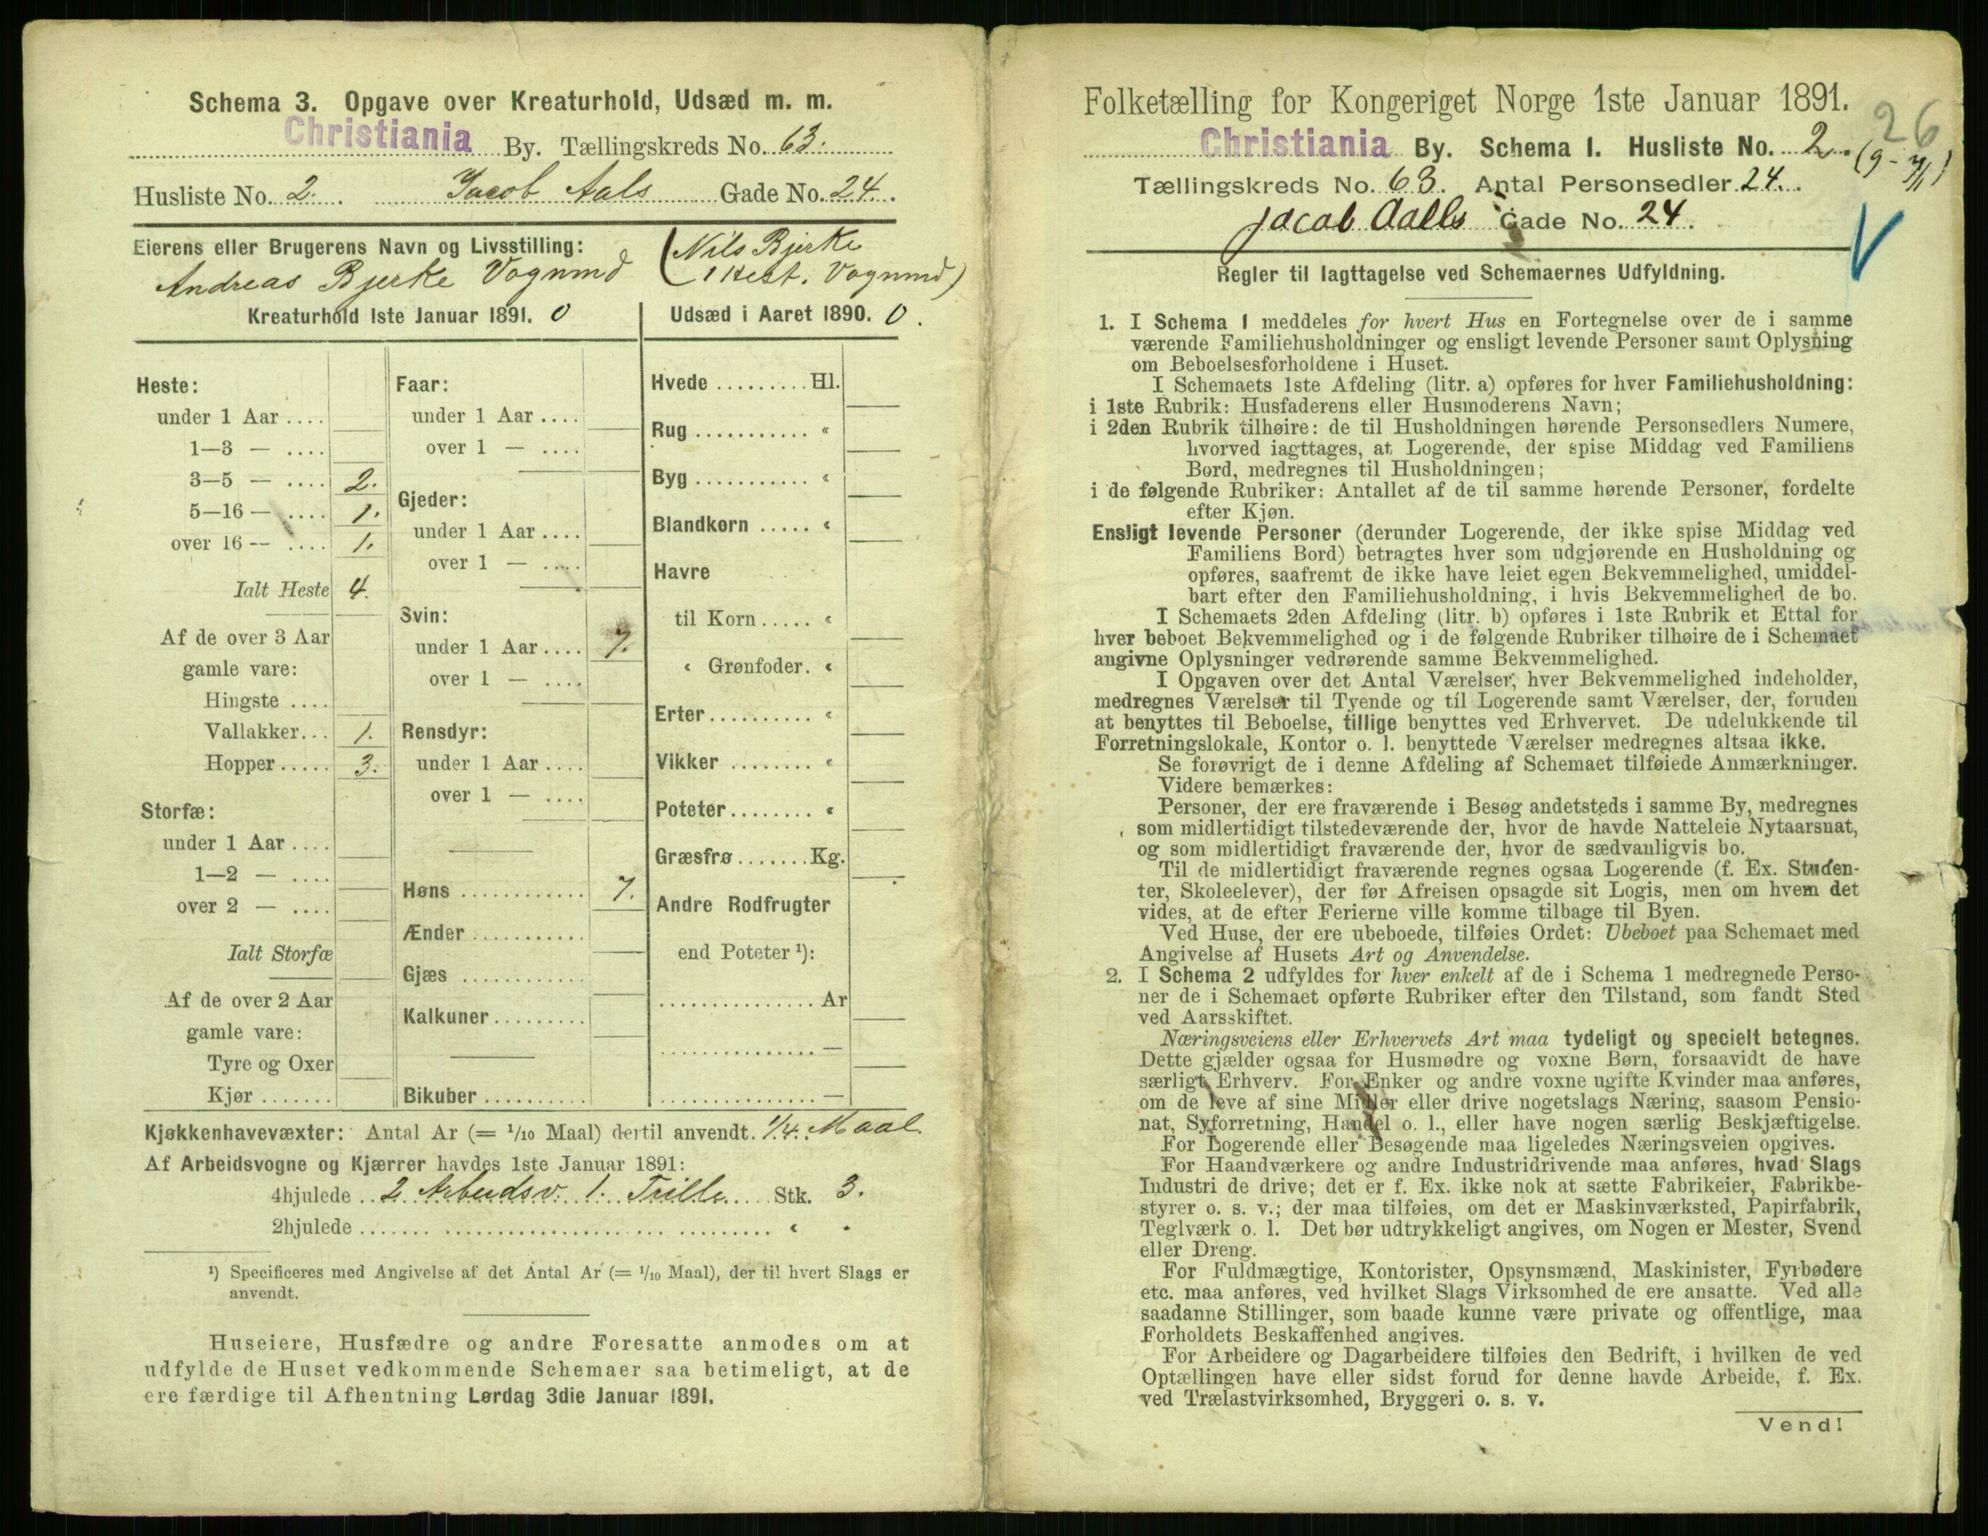 Schema 3. Opgave over Kreaturhold, Udsæd m. m.
Christiania By. Tællingskreds No. 63.
Husliste No. 2. Jacob Aals Gade No. 24.
Eierens eller Brugerens Navn og Livsstilling:
Andreas Bjerke Vognmd (Nils Bjerke
1 Hest. Vognmd)
Kreaturhold 1ste Januar 1891. 0
Heste:
under 1 Aar ....
1—3 — ....
3—5 — .... 2.
5—16 — .... 1.
over 16 — .... 1.
Ialt Heste 4.
Af de over 3 Aar
gamle vare:
Hingste ....
Vallakker... 1.
Hopper ..... 3.
Storfæ:
under 1 Aar ....
1—2 — ....
over 2 — ....
Ialt Storfæ
Af de over 2 Aar
gamle vare:
Tyre og Oxer
Kjør .......
Faar:
under 1 Aar ....
over 1 — ....
Gjeder:
under 1 Aar ....
over 1 — ....
Svin:
under 1 Aar .... 7.
over 1 — ....
Rensdyr:
under 1 Aar ....
over 1 — ....
Høns ............ 7.
Ænder ...........
Gjæs ............
Kalkuner.........
Bikuber ..........
Udsæd i Aaret 1890. 0.
Hvede ......... Hl.
Rug ........... "
Byg ........... "
Blandkorn ..... "
Havre
til Korn ..... "
" Grønfoder. "
Erter.......... "
Vikker ........ "
Poteter........ "
Græsfrø ....... Kg.
Andre Rodfrugter
end Poteter ¹):
............... Ar
............... —
............... —
Kjøkkenhavevæxter: Antal Ar (= 1/10 Maal) dertil anvendt. 1/4. Maal.
Af Arbeidsvogne og Kjærrer havdes 1ste Januar 1891:
4hjulede .. 2 Arbeidsv. 1. Trille Stk. 3.
2hjulede .......................... "
¹) Specificeres med Angivelse af det Antal Ar (= 1/10 Maal), der til hvert Slags er
anvendt.
Huseiere, Husfædre og andre Foresatte anmodes om at
udfylde de Huset vedkommende Schemaer saa betimeligt, at de
ere færdige til Afhentning Lørdag 3die Januar 1891.
Folketælling for Kongeriget Norge 1ste Januar 1891.
26
Christiania By. Schema 1. Husliste No. 2.
Tællingskreds No. 63. Antal Personsedler 24.
Jacob Aalls Gade No. 24.
Regler til Iagttagelse ved Schemaernes Udfyldning.
1. I Schema 1 meddeles for hvert Hus en Fortegnelse over de i samme
værende Familiehusholdninger og ensligt levende Personer samt Oplysning
om Beboelsesforholdene i Huset.
I Schemaets 1ste Afdeling (litr. a) opføres for hver Familiehusholdning:
i 1ste Rubrik: Husfaderens eller Husmoderens Navn;
i 2den Rubrik tilhøire: de til Husholdningen hørende Personsedlers Numere,
hvorved iagttages, at Logerende, der spise Middag ved Familiens
Bord, medregnes til Husholdningen;
i de følgende Rubriker: Antallet af de til samme hørende Personer, fordelte
efter Kjøn.
Ensligt levende Personer (derunder Logerende, der ikke spise Middag ved
Familiens Bord) betragtes hver som udgjørende en Husholdning og
opføres, saafremt de ikke have leiet egen Bekvemmelighed, umiddel-
bart efter den Familiehusholdning, i hvis Bekvemmelighed de bo.
I Schemaets 2den Afdeling (litr. b) opføres i 1ste Rubrik et Ettal for
hver beboet Bekvemmelighed og i de følgende Rubriker tilhøire de i Schemaet
angivne Oplysninger vedrørende samme Bekvemmelighed.
I Opgaven over det Antal Værelser, hver Bekvemmelighed indeholder,
medregnes Værelser til Tyende og til Logerende samt Værelser, der, foruden
at benyttes til Beboelse, tillige benyttes ved Erhvervet. De udelukkende til
Forretningslokale, Kontor o. l. benyttede Værelser medregnes altsaa ikke.
Se forøvrigt de i denne Afdeling af Schemaet tilføiede Anmærkninger.
Videre bemærkes:
Personer, der ere fraværende i Besøg andetsteds i samme By, medregnes
som midlertidigt tilstedeværende der, hvor de havde Natteleie Nytaarsnat,
og som midlertidigt fraværende der, hvor de sædvanligvis bo.
Til de midlertidigt fraværende regnes ogsaa Logerende (f. Ex. Studen-
ter, Skoleelever), der før Afreisen opsagde sit Logis, men om hvem det
vides, at de efter Ferierne ville komme tilbage til Byen.
Ved Huse, der ere ubeboede, tilføies Ordet: Ubeboet paa Schemaet med
Angivelse af Husets Art og Anvendelse.
2. I Schema 2 udfyldes for hver enkelt af de i Schema 1 medregnede Perso-
ner de i Schemaet opførte Rubriker efter den Tilstand, som fandt Sted
ved Aarsskiftet.
Næringsveiens eller Erhvervets Art maa tydeligt og specielt betegnes.
Dette gjælder ogsaa for Husmødre og voxne Børn, forsaavidt de have
særligt Erhverv. For Enker og andre voxne ugifte Kvinder maa anføres,
om de leve af sine Midler eller drive nogetslags Næring, saasom Pensio-
nat, Syforretning, Handel o. l., eller have nogen særlig Beskjæftigelse.
For Logerende eller Besøgende maa ligeledes Næringsveien opgives.
For Haandværkere og andre Industridrivende maa anføres, hvad Slags
Industri de drive; det er f. Ex. ikke nok at sætte Fabrikeier, Fabrikbe-
styrer o. s. v.; der maa tilføies, om det er Maskinværksted, Papirfabrik,
Teglværk o. l. Det bør udtrykkeligt angives, om Nogen er Mester, Svend
eller Dreng.
For Fuldmægtige, Kontorister, Opsynsmænd, Maskinister, Fyrbødere
etc. maa anføres, ved hvilket Slags Virksomhed de ere ansatte. Ved alle
saadanne Stillinger, som baade kunne være private og offentlige, maa
Forholdets Beskaffenhed angives.
For Arbeidere og Dagarbeidere tilføies den Bedrift, i hvilken de ved
Optællingen have eller sidst forud for denne havde Arbeide, f. Ex.
ved Trælastvirksomhed, Bryggeri o. s. v.
Vend!